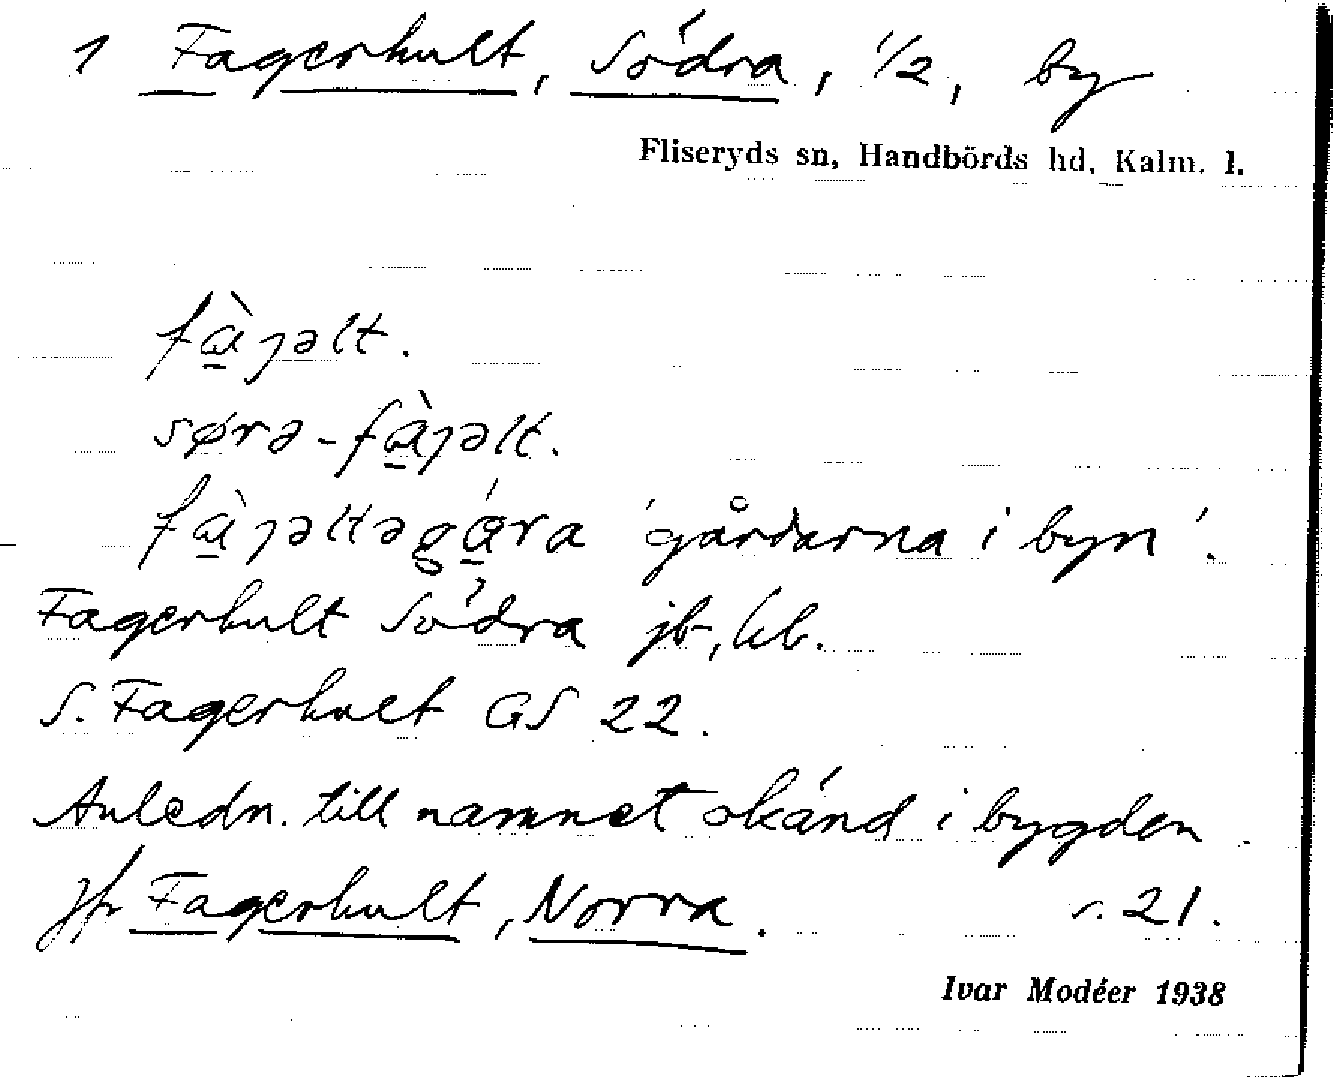 1 Fagerhult, Södra, 1/2, by
Fliseryds sn, Handbörds hd, Kalm. l.
fɑ̀ȷəlt.
sørə-fɑ̀ȷəlt.
fɑ̀ȷəltəgɑ́ra 'gårdarna i byn'.
Fagerhult Södra jb, kb.
S. Fagerhult GS 22.
Anledn. till namnet okänd i bygden.
Jfr Fagerhult, Norra. s. 21.
Ivar Modéer 1938